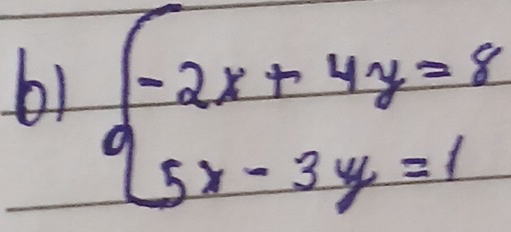 b) { -2x + 4y = 8
5x - 3y = 1